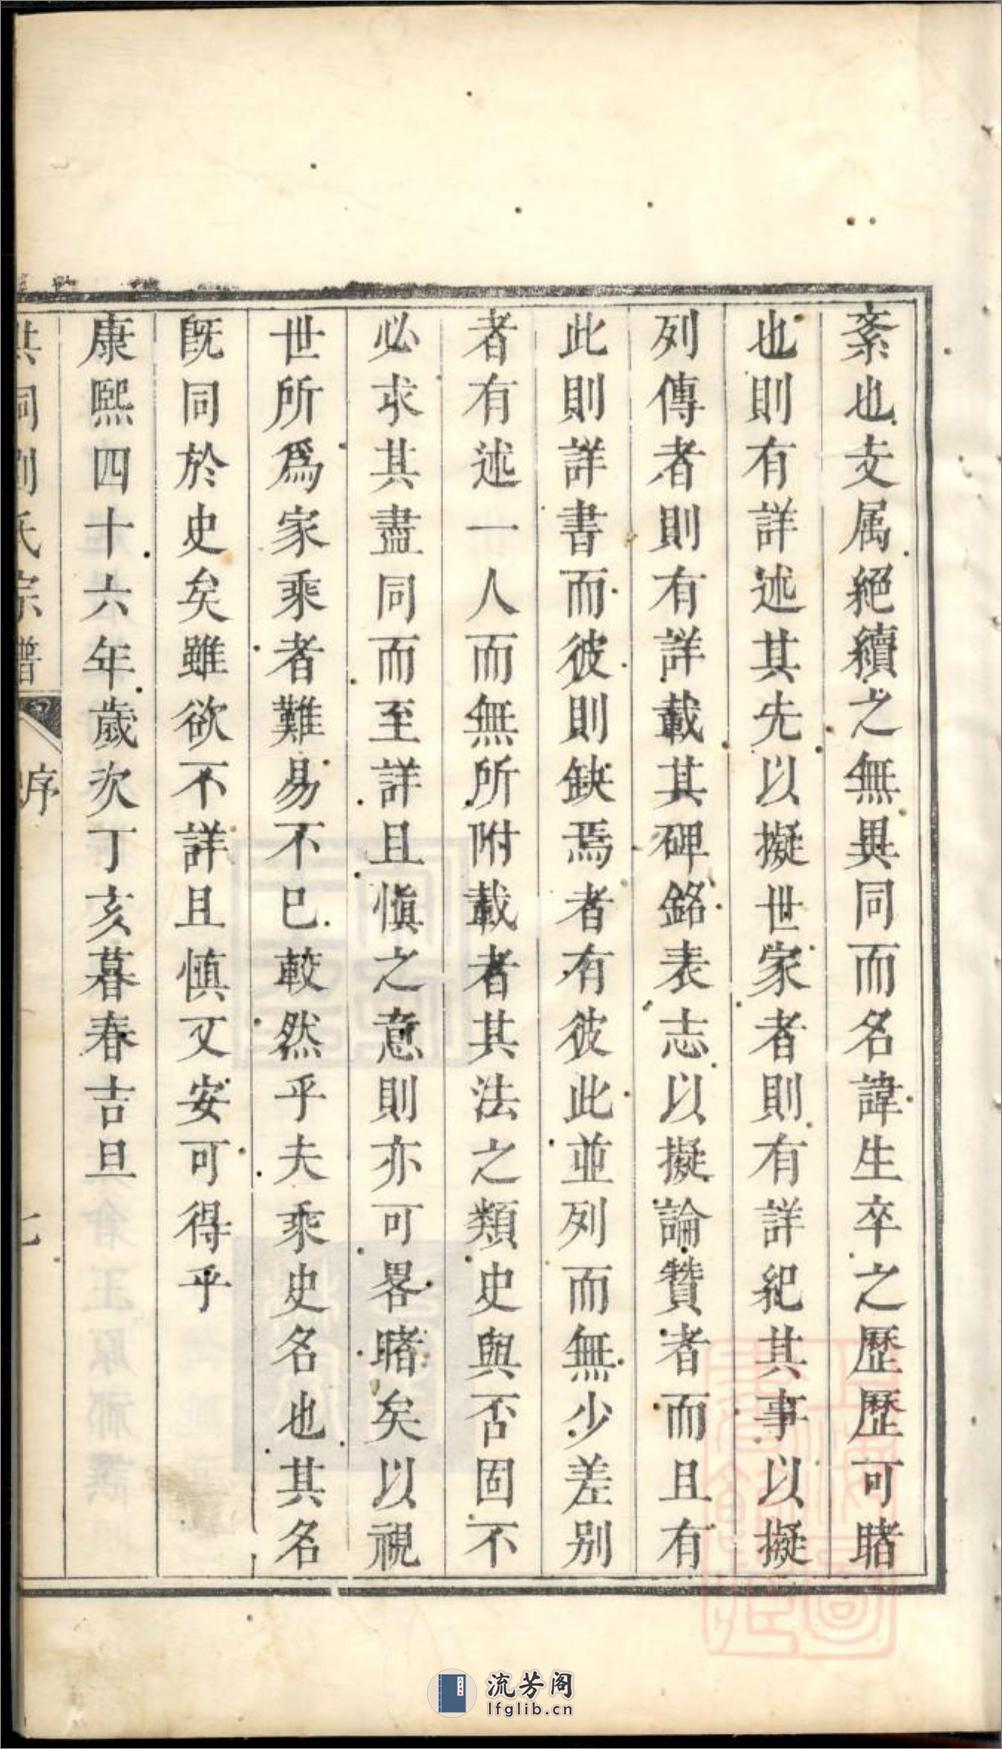 紊也支属絕續之無異同而名諱生卒之歷歷可睹
也則有詳述其先以擬世家者則有詳紀其事以擬
列傳者則有詳載其碑銘表志以擬論贊者而且有
此則詳書而彼則缺焉者有彼此並列而無少差别
者有述一人而無所附載者其法之類史與否固不
必求其盡同而至詳且愼之意則亦可畧睹矣以視
世所爲家乘者難易不已較然乎夫乘史名也其名
旣同於史矣雖欲不詳且慎又安可得乎
康熙四十六年歲次丁亥暮春吉旦
洪洞劉氏宗譜 序 七
流芳阁
lfglib.cn